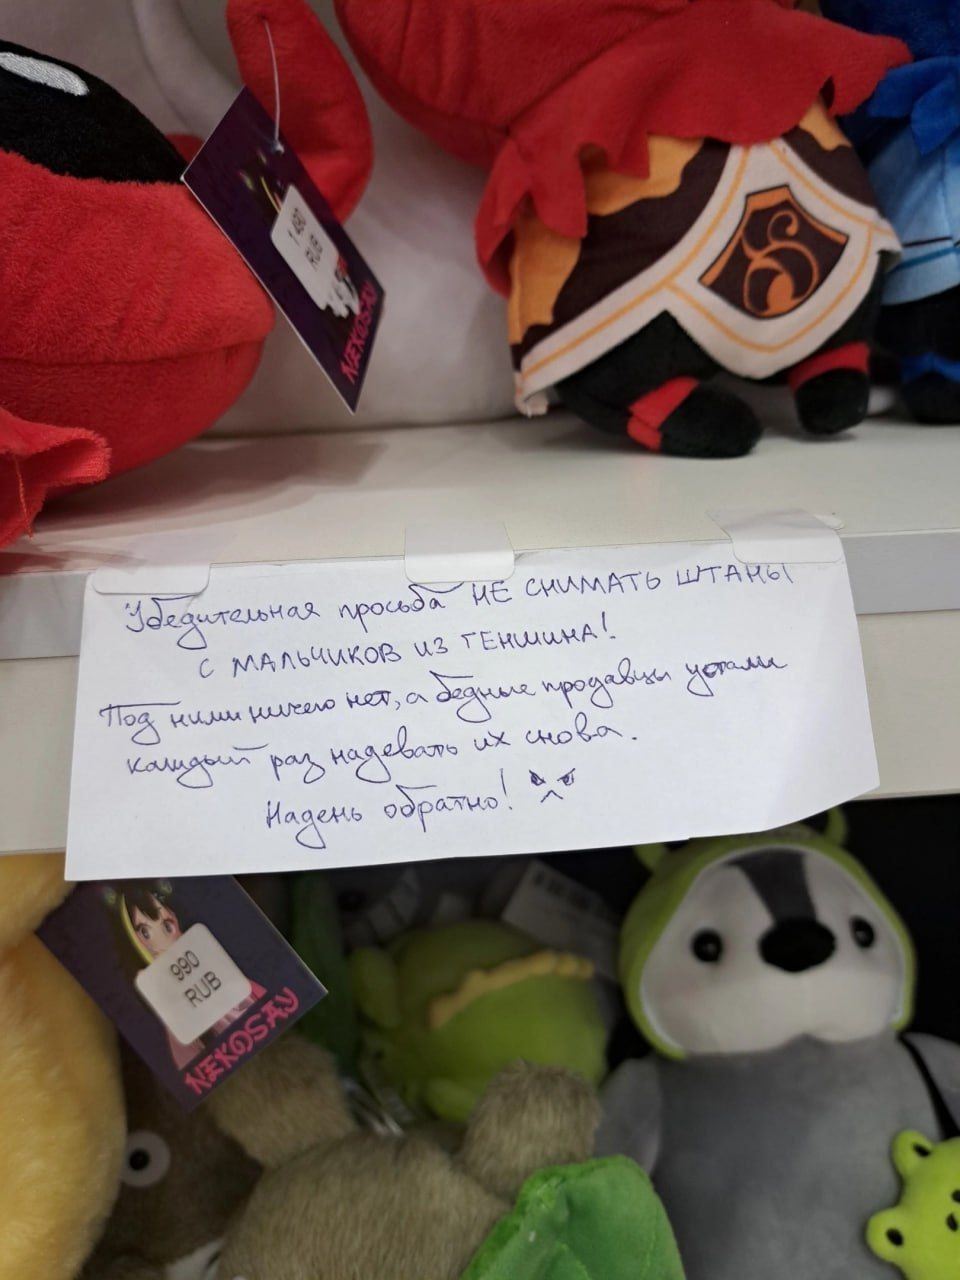 1 490
RUB
NEKOSAY
Убедительная просьба НЕ СНИМАТЬ ШТАНЫ
С МАЛЬЧИКОВ ИЗ ГЕНШИНА!
Под ними ничего нет, а бедные продавцы устали
каждый раз надевать их снова.
Надень обратно!
990
RUB
NEKOSAY